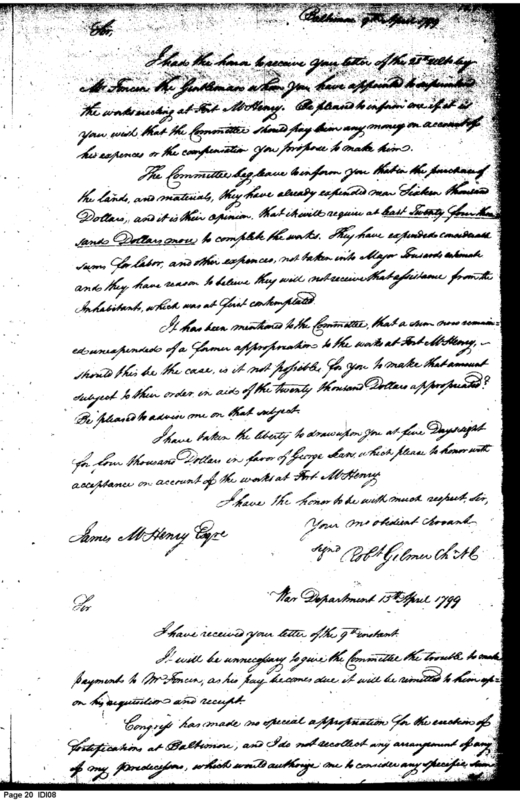 Baltimore 9th April 1799
Sir.
I had the honor to receive your letter of the 23d ulto by
Mr Foncin the Gentleman whom you have appointed to superintend
the works erecting at Fort McHenry. Be pleased to inform me if it is
your wish that the Committee should pay him any money on account of
his expences or the compensation you propose to make him.
The Committee beg leave to inform you that in the purchase of
the lands, and materials, they have already expended near Sixteen thousand
Dollars, and it is their opinion, that it will require at least Twenty four thou
sands Dollars more to complete the works. They have expended considerable
sums for labor, and other expences, not taken into Major Tousards estimate
and they have reason to believe they will not receive that assistance from the
Inhabitants, which was at first contemplated
It has been mentioned to the Committee, that a sum now remain-
ed unexpended of a former appropreation to the works at Fort McHenry, –
should this be the case, is it not possible, for you to make that amount
subject to their order in aid of the twenty thousand Dollars appropriated?
Be pleased to advise me on that subject.
I have taken the liberty to draw upon you at five Days sight
for four thousand Dollars in favor of George Sears, which please to honor with
acceptance on account of the works at Fort McHenry
I have the honor to be with much respect, Sir,
Your mo obedient Servant
James McHenry Esqre
signd Robt Gilmor Ch N C
War Department 15th April 1799
Sir
I have received your letter of the 9th instant.
It will be unnecessary to give the Committee the trouble to make
payments to Mr Foncin, as his pay becomes due it will be remitted to him up-
on his requisition and receipt.
Congress has made no special appropriation for the erection of
fortifications at Baltimore, and I do not recollect any arrangement of any
of my predecessors, which would authorize me to consider any specific sum
Page 20 IDI08